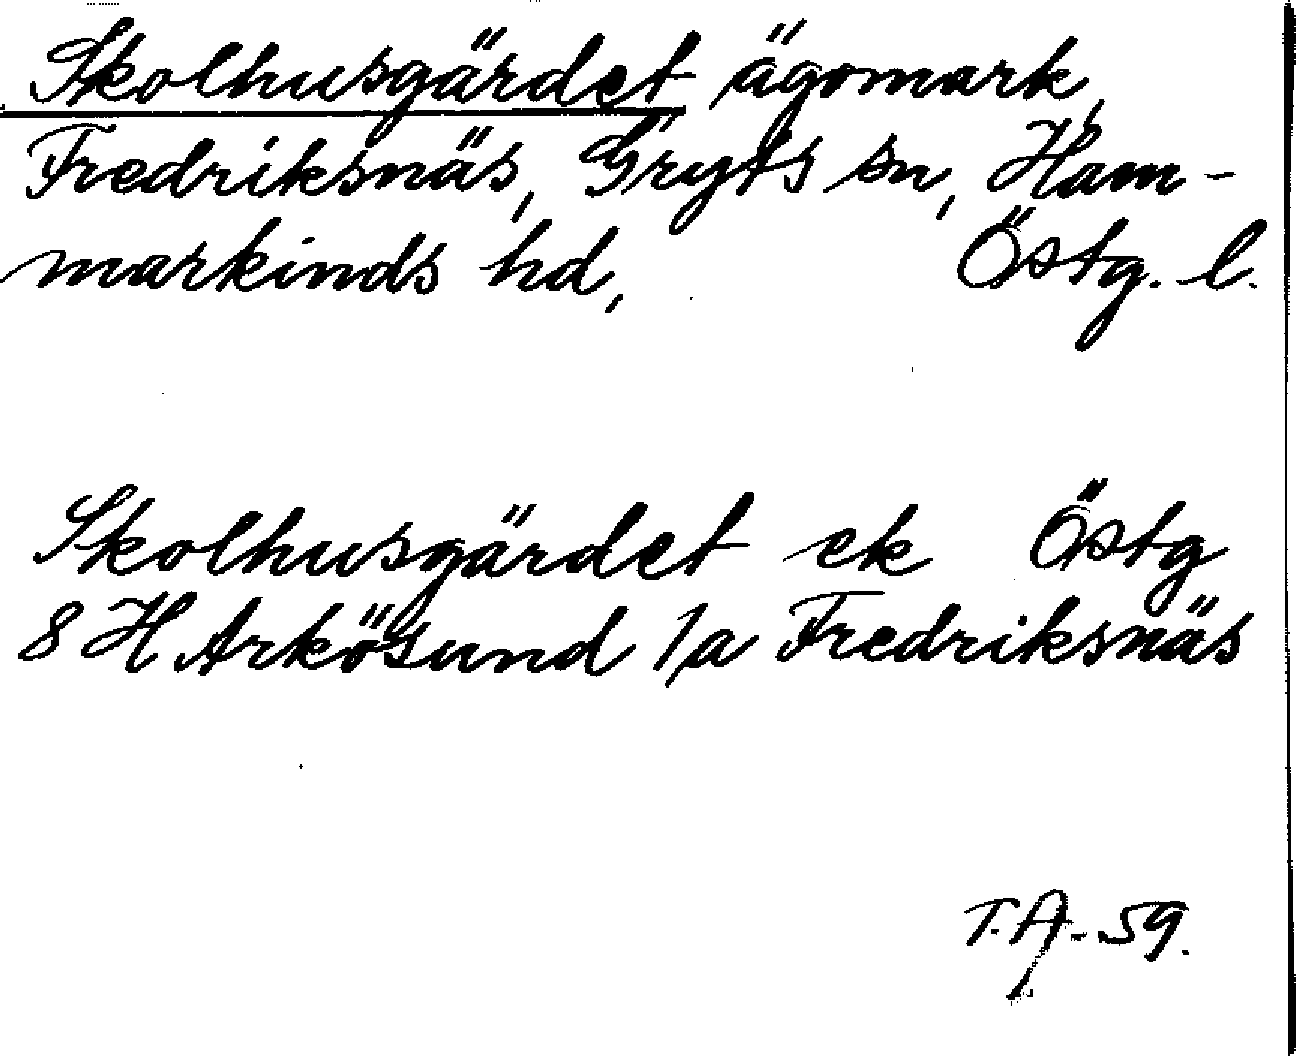 Skolhusgärdet ägomark,
Fredriksnäs, Gryts sn, Ham-
markinds hd, Östg. l.
Skolhusgärdet ek Östg
8 H Arkösund 1/a Fredriksnäs
T.A. - 59.